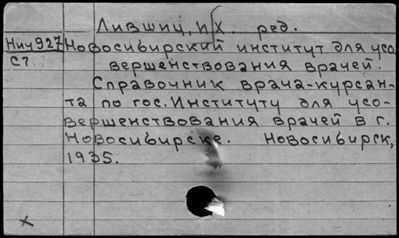 Лившиц, И/Х. ред.
Нич927 Новосибирский институт для усо-
С7. вершенствования врачей.
Справочник врача-курсан-
та по гос. Институту для усо-
вершенствования врачей в г.
Новосибирске. Новосибирск,
1935.
x